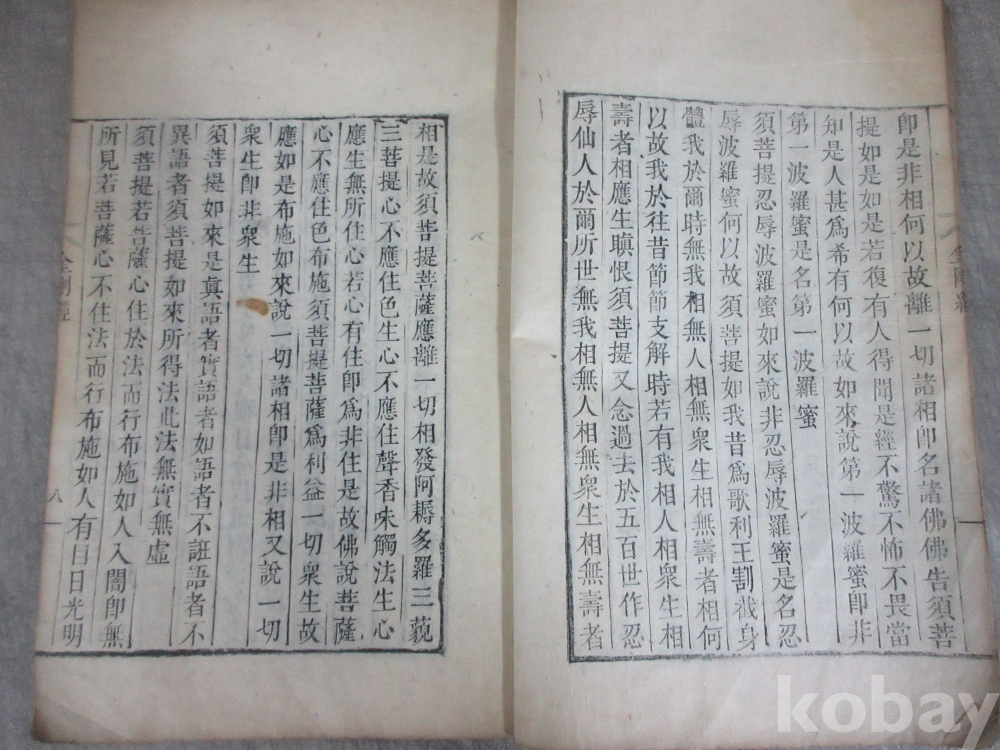 卽是非相何以故離一切諸相卽名諸佛佛告須菩
提如是如是若復有人得聞是經不驚不怖不畏當
知是人甚爲希有何以故如來說第一波羅蜜卽非
第一波羅蜜是名第一波羅蜜
須菩提忍辱波羅蜜如來說非忍辱波羅蜜是名忍
辱波羅蜜何以故須菩提如我昔爲歌利王割截身
體我於爾時無我相無人相無衆生相無壽者相何
以故我於往昔節節支解時若有我相人相衆生相
壽者相應生瞋恨須菩提又念過去於五百世作忍
辱仙人於爾所世無我相無人相無衆生相無壽者
相是故須菩提菩薩應離一切相發阿耨多羅三藐
三菩提心不應住色生心不應住聲香味觸法生心
應生無所住心若心有住卽爲非住是故佛說菩薩
心不應住色布施須菩提菩薩爲利益一切衆生故
應如是布施如來說一切諸相卽是非相又說一切
衆生卽非衆生
須菩提如來是真語者實語者如語者不誑語者不
異語者須菩提如來所得法此法無實無虛
須菩提若菩薩心住於法而行布施如人入闇卽無
所見若菩薩心不住法而行布施如人有目日光明
金剛經
八
kobay